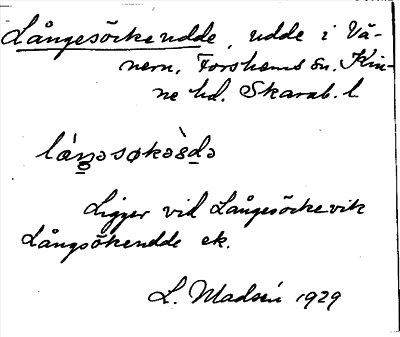 Långesörkeudde, udde i Vä-
nern, Forshems sn. Kin-
ne hd. Skarab. l.
Ligger vid Långesörkevik
Långsökendde ek.
L. Madsén 1929